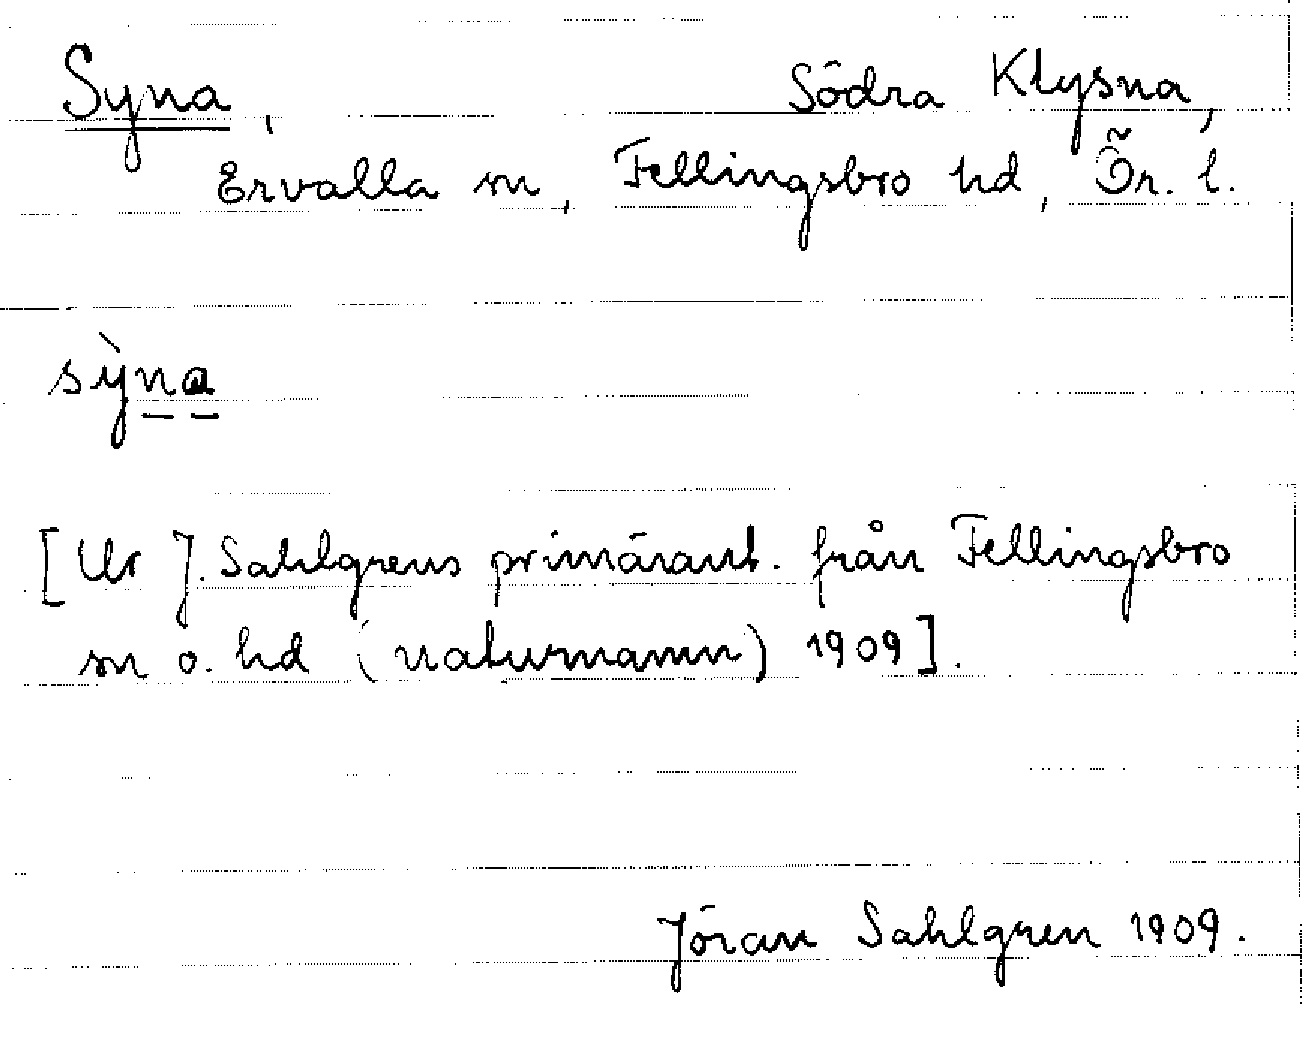 Syna, Södra Klysna,
Ervalla sn, Fellingsbro hd, Ör. l.
sỳna
[Ur J. Sahlgrens primärant. från Fellingsbro
sn o. hd (naturnamn) 1909].
Jöran Sahlgren 1909.